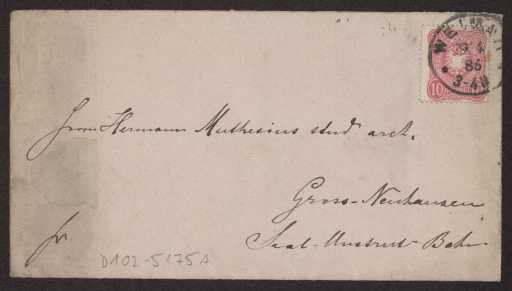 WEIMAR
29 4
86
3-4N
10
Herrn Hermann Muthesius stud. arch.
Gross-Neuhausen
Saal-Unstrut-Bahn
fr.
D102-5175A